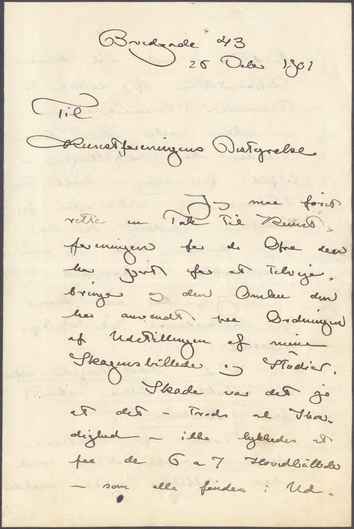 Bredgade 43
26 Debr 1901
Til
Kunstforeningens Bestyrelse
Jeg maa først
rette en Tak til Kunst-
foreningen for de Ofre den
har gjort for at tilveje-
bringe og den Omhu den
har anvendt paa Ordningen
af Udstillingen af mine
Skagensbilleder og Studier.
Skade var det jo
at det – trods al Ihær-
dighed – ikke lykkedes at
faa de 6 a 7 Hovedbilleder
– som alle findes i Ud-